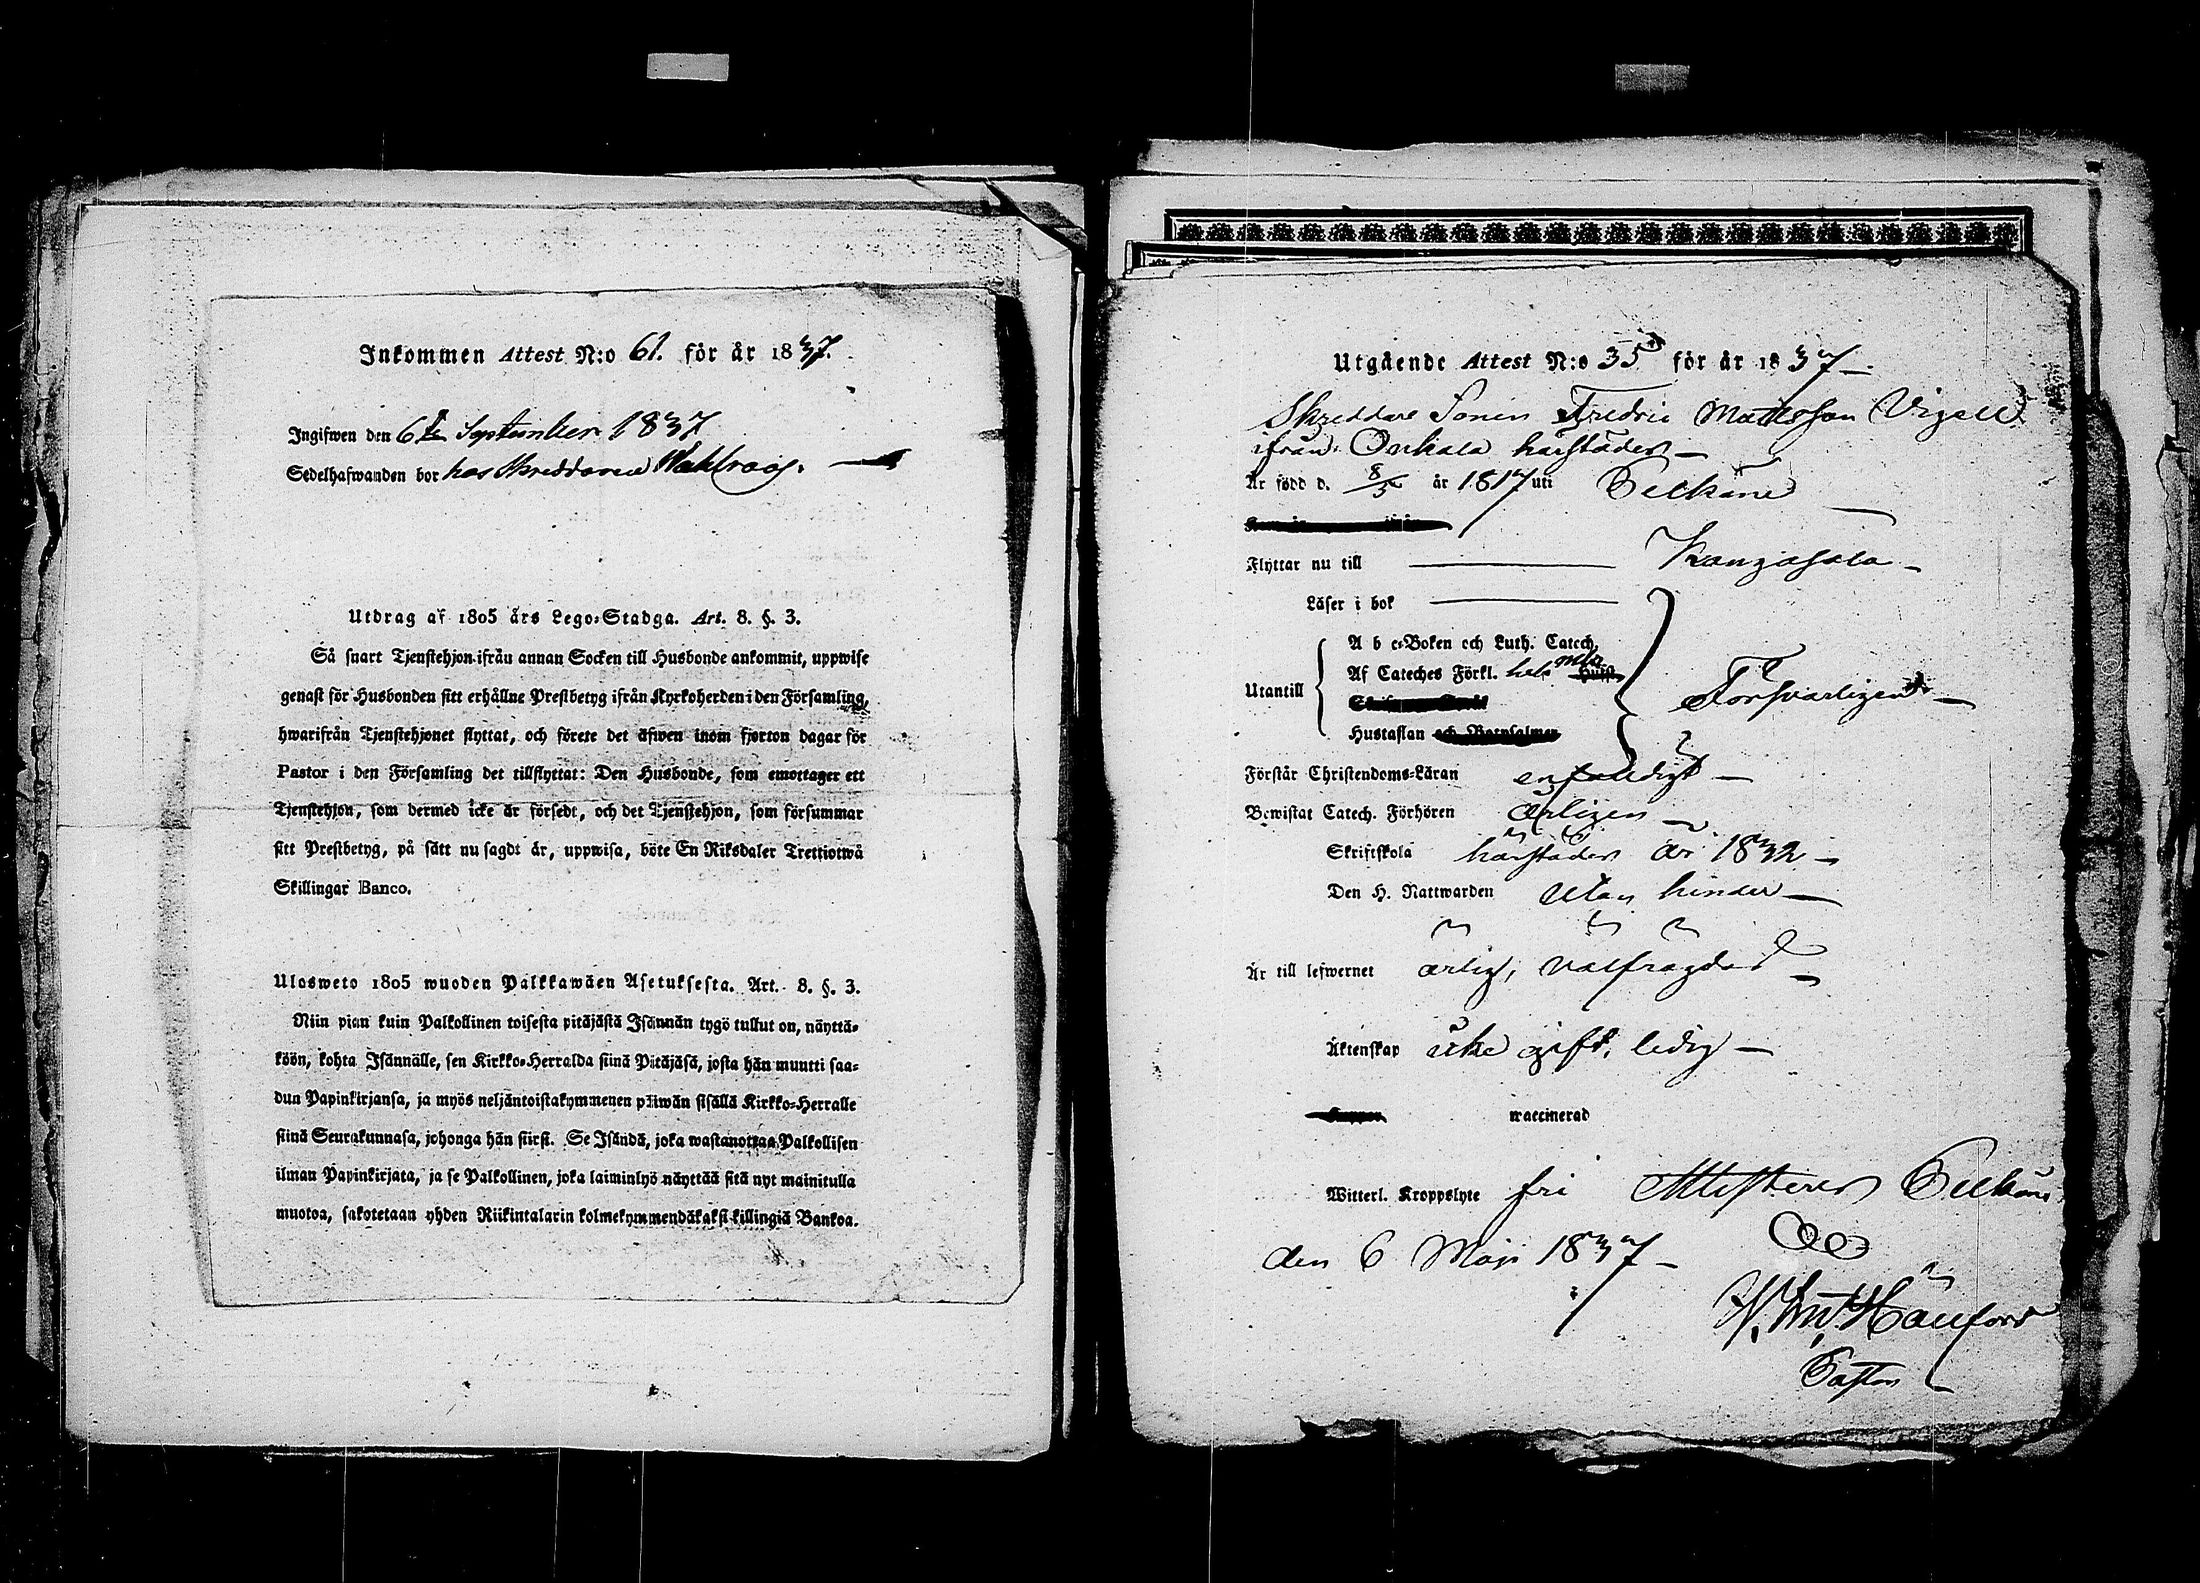 Inkommen Attest N:o 61. för år 1837.
Ingifwen den 6te September 1837
Sedelhafwanden bor hos Skreddaren Wahlroos.
Utdrag af 1805 års Lego-Stadga. Art. 8. §. 3.
Så snart Tjenstehjon ifrån annan Socken till Husbonde ankommit, uppwise
genast för Husbonden sitt erhållne Prestbetyg ifrån Kyrkoherden i den Församling,
hwarifrån Tjenstehjonet flyttat, och förete det äfwen inom fjorton dagar för
Pastor i den Församling det tillflyttat: Den Husbonde, som emottager ett
Tjenstehjon, som dermed icke är försedt, och det Tjenstehjon, som försummar
sitt Prestbetyg, på sätt nu sagdt är, uppwisa, böte En Riksdaler Trettiotwå
Skillingar Banco.
Ulosweto 1805 wuoden Palkkawäen Asetuksesta. Art. 8. §. 3.
Niin pian kuin Palkollinen toisesta pitäjästä Isännän tygö tullut on, näyttä-
köön, kohta Isännälle, sen Kirkko-Herralda siinä Pitäjäsä, josta hän muutti saa-
dun Papinkirjansa, ja myös neljäntoistakymmenen päiwän sisällä Kirkko-Herralle
siinä Seurakunnasa, johonga hän siirsi. Se Isändä, joka wastanottaa Palkollisen
ilman Papinkirjata, ja se Palkollinen, joka laiminlyö näyttää sitä nyt mainitulla
muotoa, sakotetaan yhden Riikintalarin kolmekymmendäkaksi killingiä Bankoa.
Utgående Attest N:o 35 för år 1837
Skreddare Sonen Fredric Mattsson Vigell
ifrån Onkala härstädes
Är född d. 8/5 år 1817 uti Pelkäne
Flyttar nu till Kangasala
Läser i bok
A b c-Boken och Luth. Catech.
Af Cateches Förkl.
Utantill Försvarligen
Hustaflan och Botpsalmer
Förstår Christendoms-Läran enfaldigt
Bewistat Catech. Förhören årligen
Skriftskola härstädes år 1832
Den H. Nattwarden utan hinder
Är till lefwernet ärlig, välfrägdad
Äktenskap icke gift, ledig
Koppor waccinerad
Witterl. Kroppslyte fri Attesterer Pelkäne
den 6 Maji 1837
Hällfors
Pastor